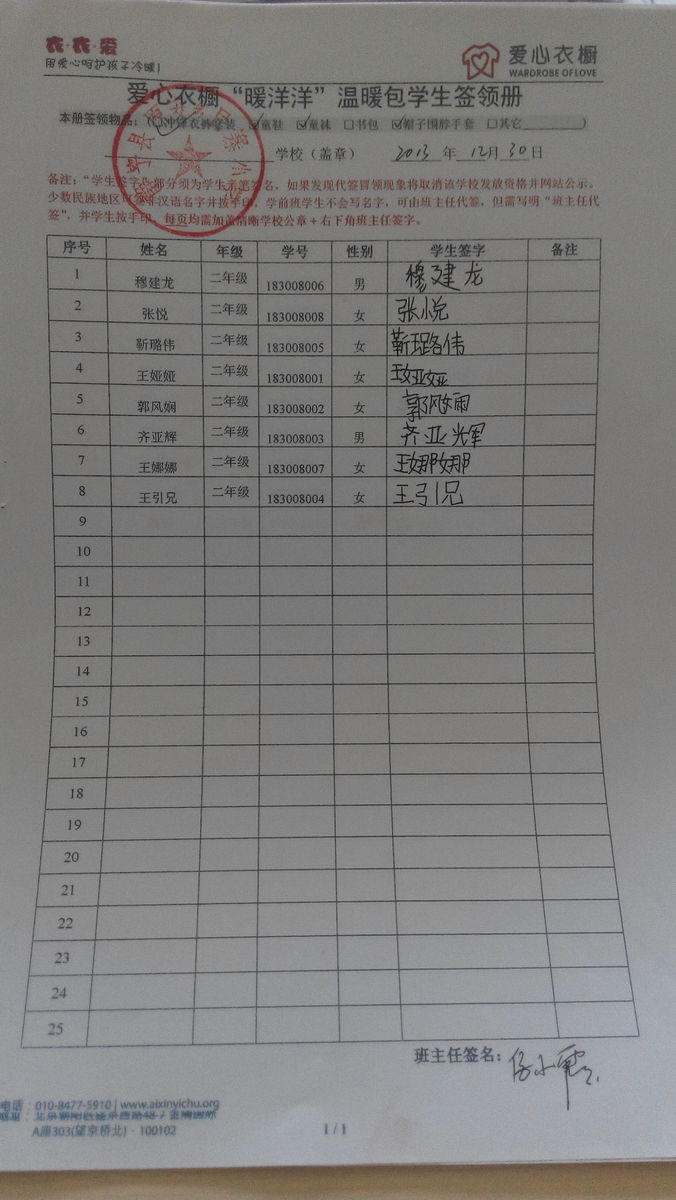 衣·衣·爱
用爱心呵护孩子冷暖!
爱心衣橱
WARDROBE OF LOVE
爱心衣橱“暖洋洋”温暖包学生签领册
本册签领物品:(☑冲锋衣裤套装 ☑童鞋 ☑童袜 ☐书包 ☑帽子围脖手套 ☐其它 )
学校(盖章) 2013 年 12月 30日
备注:“学生签字”部分须为学生亲笔签名,如果发现代签冒领现象将取消该学校发放资格并网站公示。
少数民族地区可签非汉语名字并按手印,学前班学生不会写名字,可由班主任代签,但需写明“班主任代
签”,并学生按手印。每页均需加盖清晰学校公章+右下角班主任签字。
序号 姓名 年级 学号 性别 学生签字 备注
1 穆建龙 二年级 183008006 男 穆建龙
2 张悦 二年级 183008008 女 张悦
3 靳璐伟 二年级 183008005 女 靳璐伟
4 王娅娅 二年级 183008001 女 王娅娅
5 郭风娴 二年级 183008002 女 郭风娴
6 齐亚辉 二年级 183008003 男 齐亚辉
7 王娜娜 二年级 183008007 女 王娜娜
8 王引兄 二年级 183008004 女 王引兄
9
10
11
12
13
14
15
16
17
18
19
20
21
22
23
24
25
班主任签名:
电话:010-8477-5910 | www.aixinyichu.org
A座303(望京桥北)· 100102
1 / 1